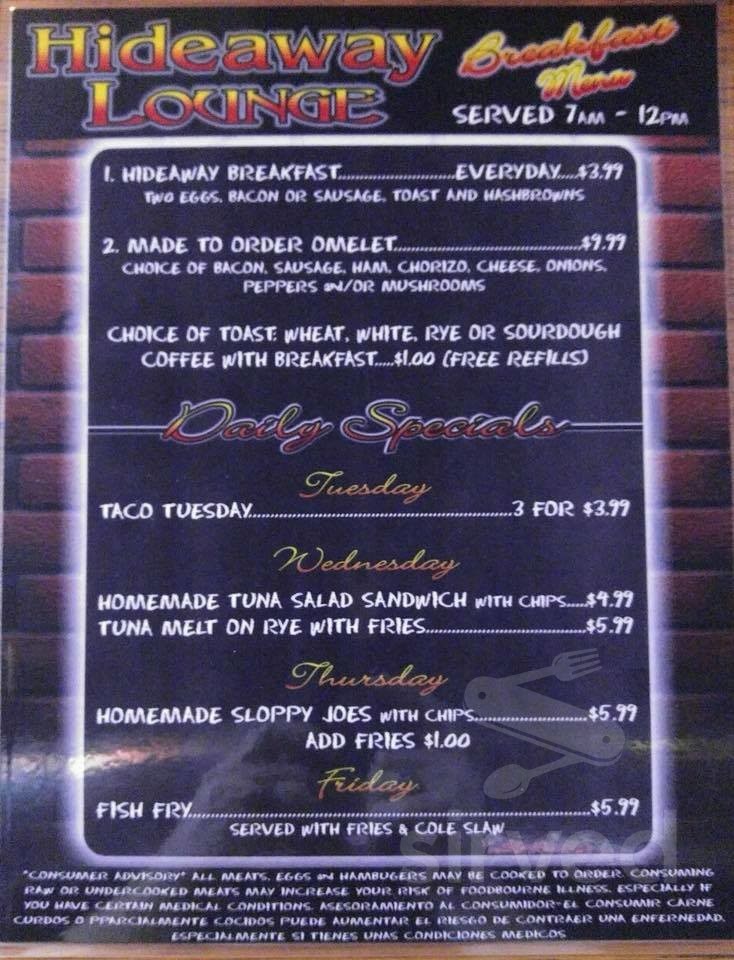 Hideaway
Lounge
Breakfast
Menu
SERVED 7AM - 12PM
1. HIDEAWAY BREAKFAST..............................EVERYDAY....$3.99
TWO EGGS, BACON OR SAUSAGE, TOAST AND HASHBROWNS
2. MADE TO ORDER OMELET................................................$4.99
CHOICE OF BACON, SAUSAGE, HAM, CHORIZO, CHEESE, ONIONS,
PEPPERS AN/OR MUSHROOMS
CHOICE OF TOAST: WHEAT, WHITE, RYE OR SOURDOUGH
COFFEE WITH BREAKFAST.....$1.00 (FREE REFILLS)
Daily Specials
Tuesday
TACO TUESDAY....................................................................3 FOR $3.99
Wednesday
HOMEMADE TUNA SALAD SANDWICH WITH CHIPS.....$4.99
TUNA MELT ON RYE WITH FRIES..........................................$5.99
Thursday
HOMEMADE SLOPPY JOES WITH CHIPS.............................$5.99
ADD FRIES $1.00
Friday
FISH FRY.........................................................................................$5.99
SERVED WITH FRIES & COLE SLAW
sirved
*CONSUMER ADVISORY* ALL MEATS, EGGS AN HAMBUGERS MAY BE COOKED TO ORDER. CONSUMING
RAW OR UNDERCOOKED MEATS MAY INCREASE YOUR RISK OF FOODBOURNE ILLNESS. ESPECIALLY IF
YOU HAVE CERTAIN MEDICAL CONDITIONS. ASESORAMIENTO AL CONSUMIDOR-EL CONSUMIR CARNE
CURDOS O PPARCIALMENTE COCIDOS PUEDE AUMENTAR EL RIESGO DE CONTRAER UNA ENFERNEDAD.
ESPECIALMENTE SI TIENES UNAS CONDICIONES MEDICOS